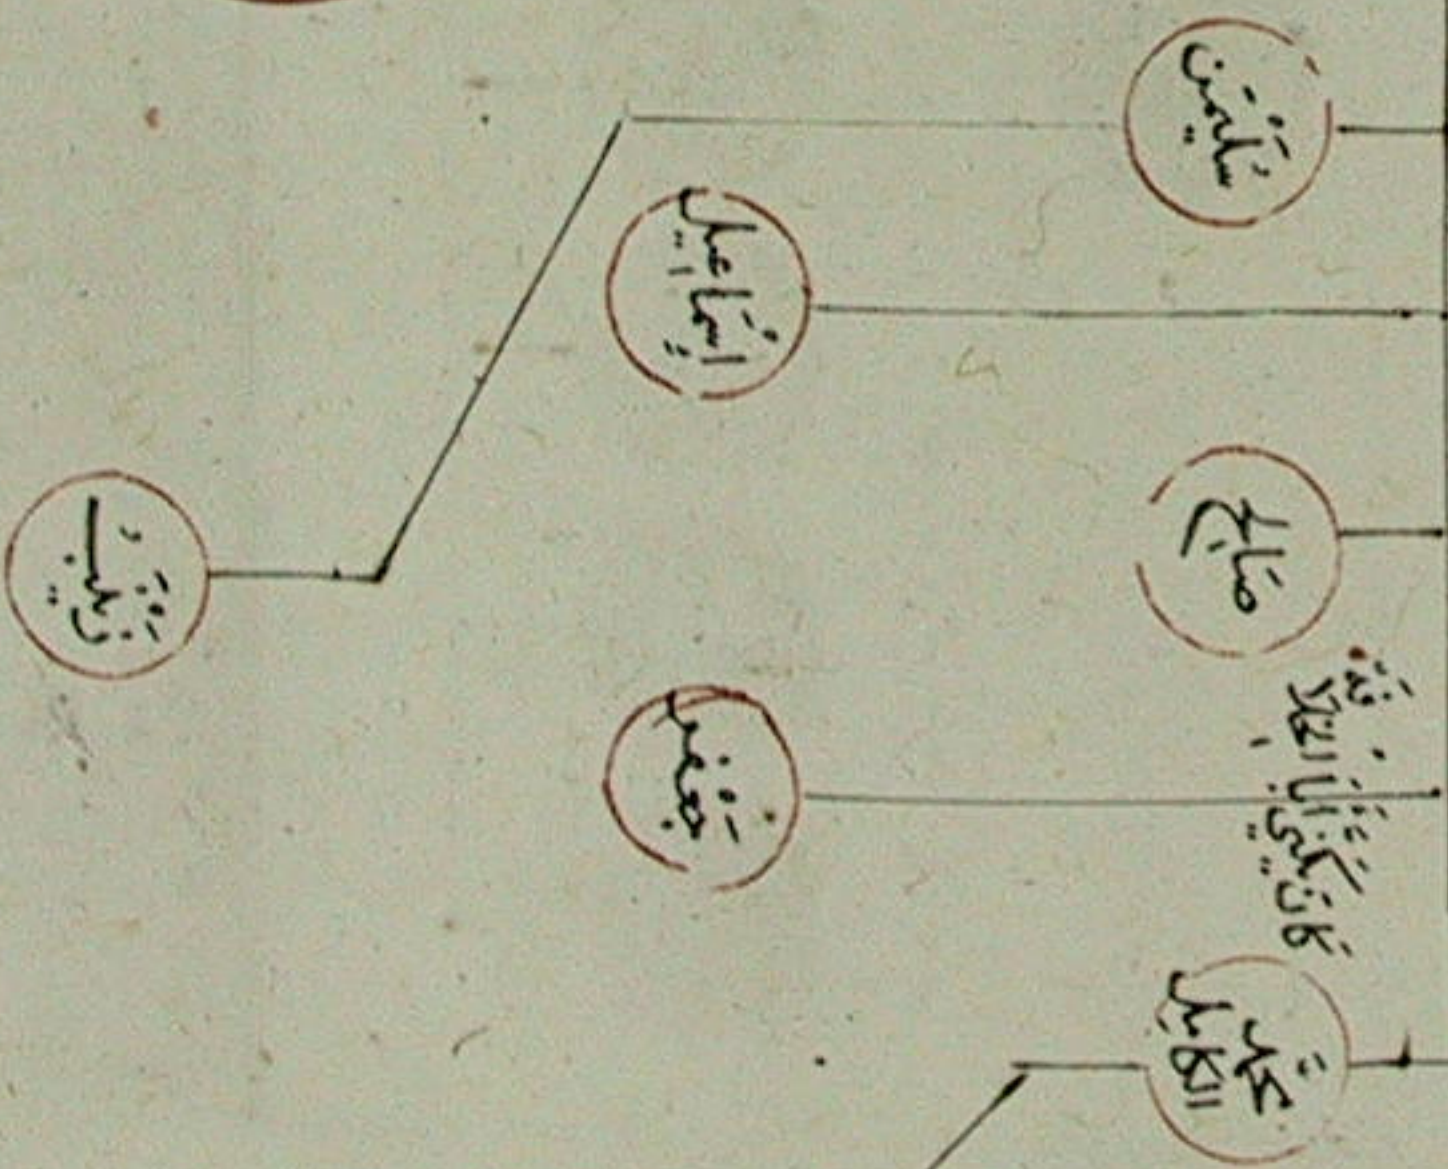 سُلَيْمَن
إِسْمَاعِيل
صَالح
زَيْنَبُ
جَعْفَر
كَانَ يُكْنَى أَبَا الخِلَافَة
مُحَمَّد
الكَامِل